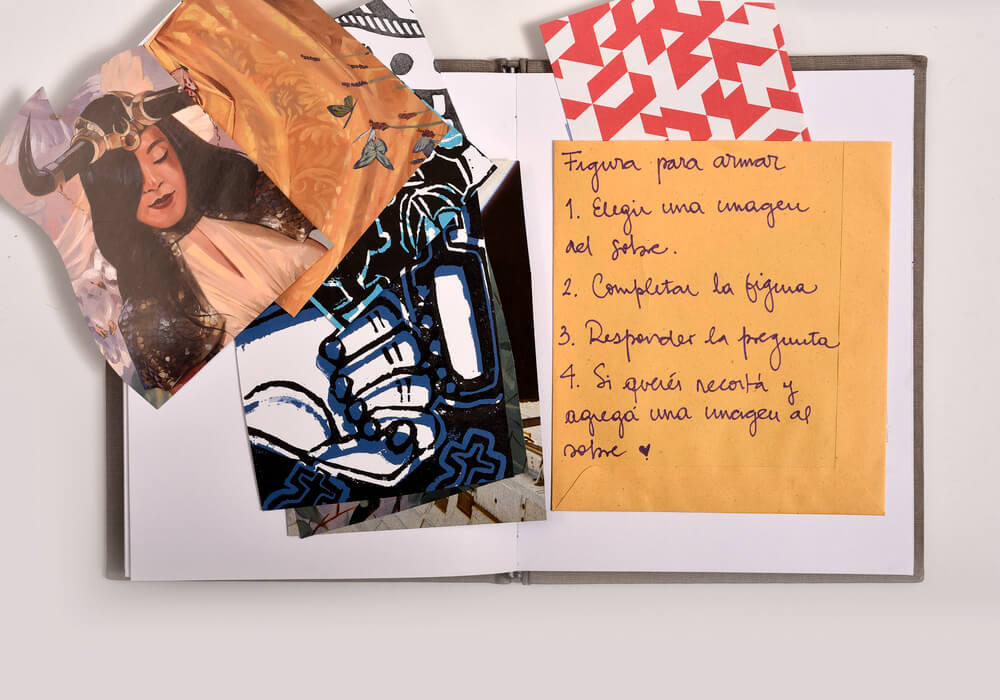 Figura para armar
1. Elegir una imagen
del sobre.
2. Completar la figura
3. Responder la pregunta
4. Si querés recortá y
agregá una imagen al
sobre ♥